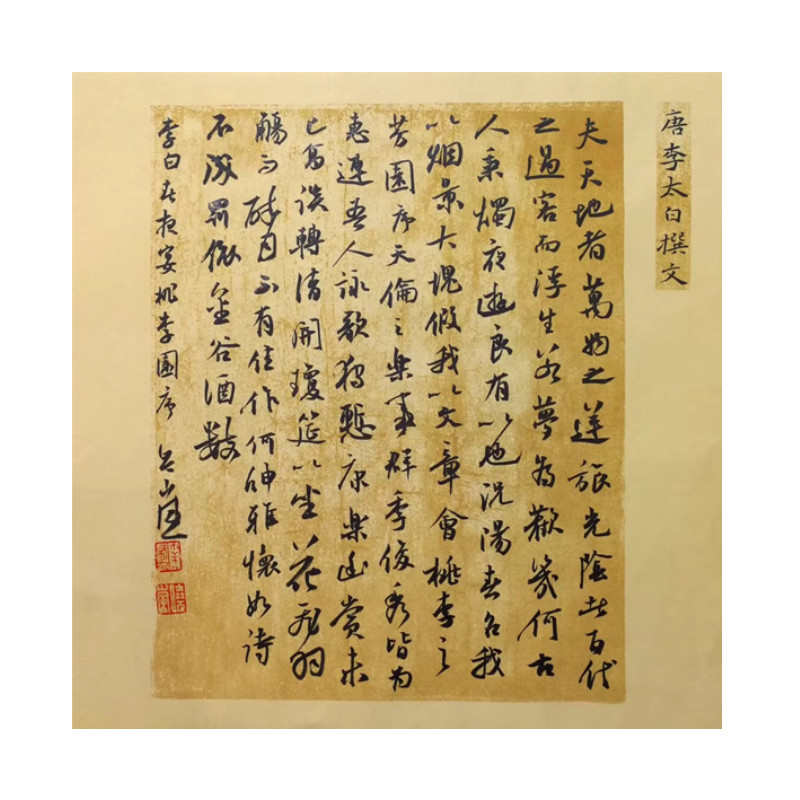 唐李太白撰文
夫天地者萬物之逆旅光陰者百代
之過客而浮生若夢為歡幾何古
人秉燭夜遊良有以也況陽春召我
以烟景大塊假我以文章會桃李之
芳園序天倫之樂事群季俊秀皆為
惠連吾人詠歌獨慙康樂幽賞未
已高談轉清開瓊筵以坐花飛羽
觴而醉月不有佳作何伸雅懷如詩
不成罰依金谷酒數
李白春夜宴桃李園序